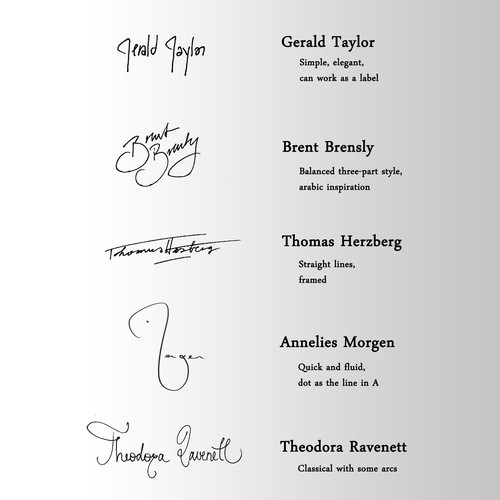 Jerald Taylor
Gerald Taylor
Simple, elegant,
can work as a label
Brent
Brensly
Brent Brensly
Balanced three-part style,
arabic inspiration
Thomas Herzberg
Thomas Herzberg
Straight lines,
framed
Morgen
Annelies Morgen
Quick and fluid,
dot as the line in A
Theodora Ravenett
Theodora Ravenett
Classical with some arcs